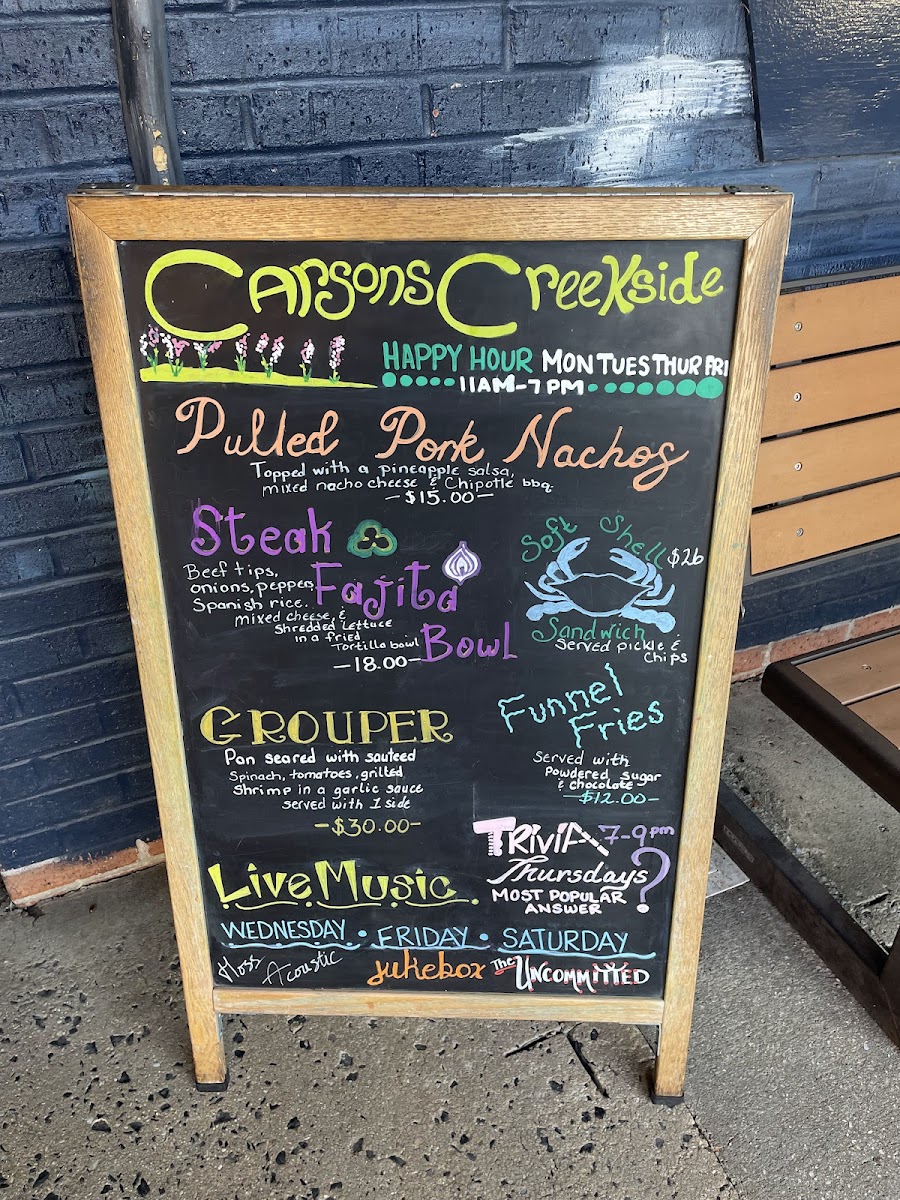 Carsons Creekside
HAPPY HOUR MON TUES THUR FRI
11AM-7PM
Pulled Pork Nachos
Topped with a pineapple salsa,
mixed nacho cheese & Chipotle bbq
-$15.00-
Steak
Fajita
Bowl
Beef tips,
onions, pepper,
Spanish rice.
mixed cheese, &
Shredded Lettuce
in a fried
Tortilla bowl
-18.00-
Soft Shell $26
Sandwich
Served pickle &
Chips
GROUPER
Pan seared with sauteed
Spinach, tomatoes, grilled
Shrimp in a garlic sauce
served with 1 side
-$30.00-
Funnel
Fries
Served with
Powdered sugar
& chocolate
-$12.00-
TRIVIA 7-9pm
Thursdays?
MOST POPULAR
ANSWER
Live Music
WEDNESDAY • FRIDAY • SATURDAY
Acoustic Jukebox The UNCOMMITTED